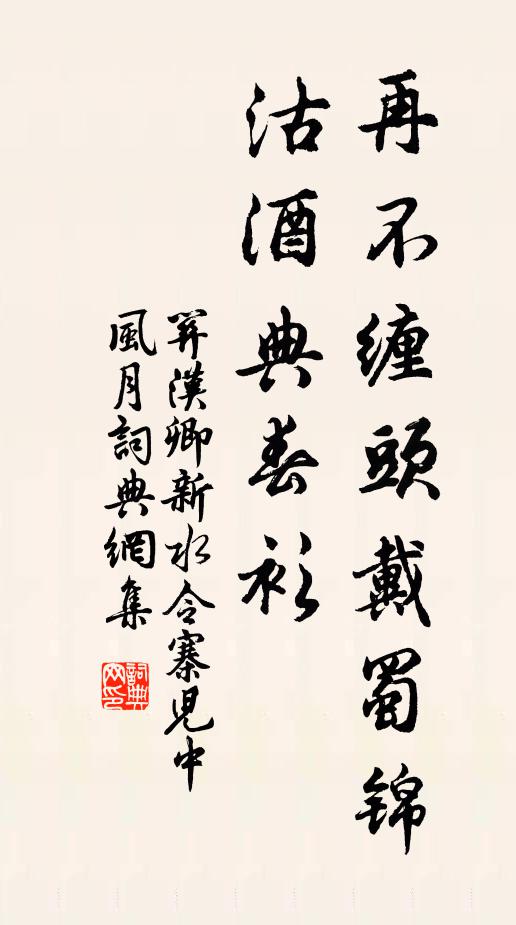 再不缠頭戴蜀锦
沽酒典春衫
關漢卿新水令寨兒中
風月詞典網集
詞典网印